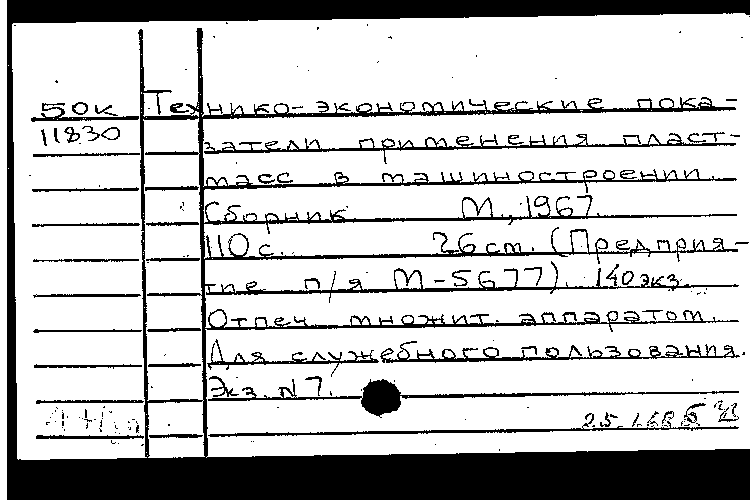 50к Технико-экономические пока-
11830 затели применения пласт-
масс в машиностроении.
Сборник. М., 1967.
110 с. 26 см. (Предприя-
тие п/я М-5677). 140 экз.
Отпеч. множит. аппаратом.
Для служебного пользования.
Экз. N 7.
25.1.68